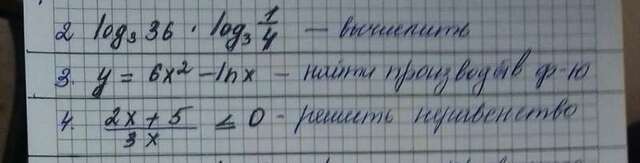 2 log₃ 36 · log₃ 1/4 — вычислить
3. y = 6x² - lnx - найти производ ф-ю
4. 2x + 5 / 3x ≤ 0 - решить неравенство